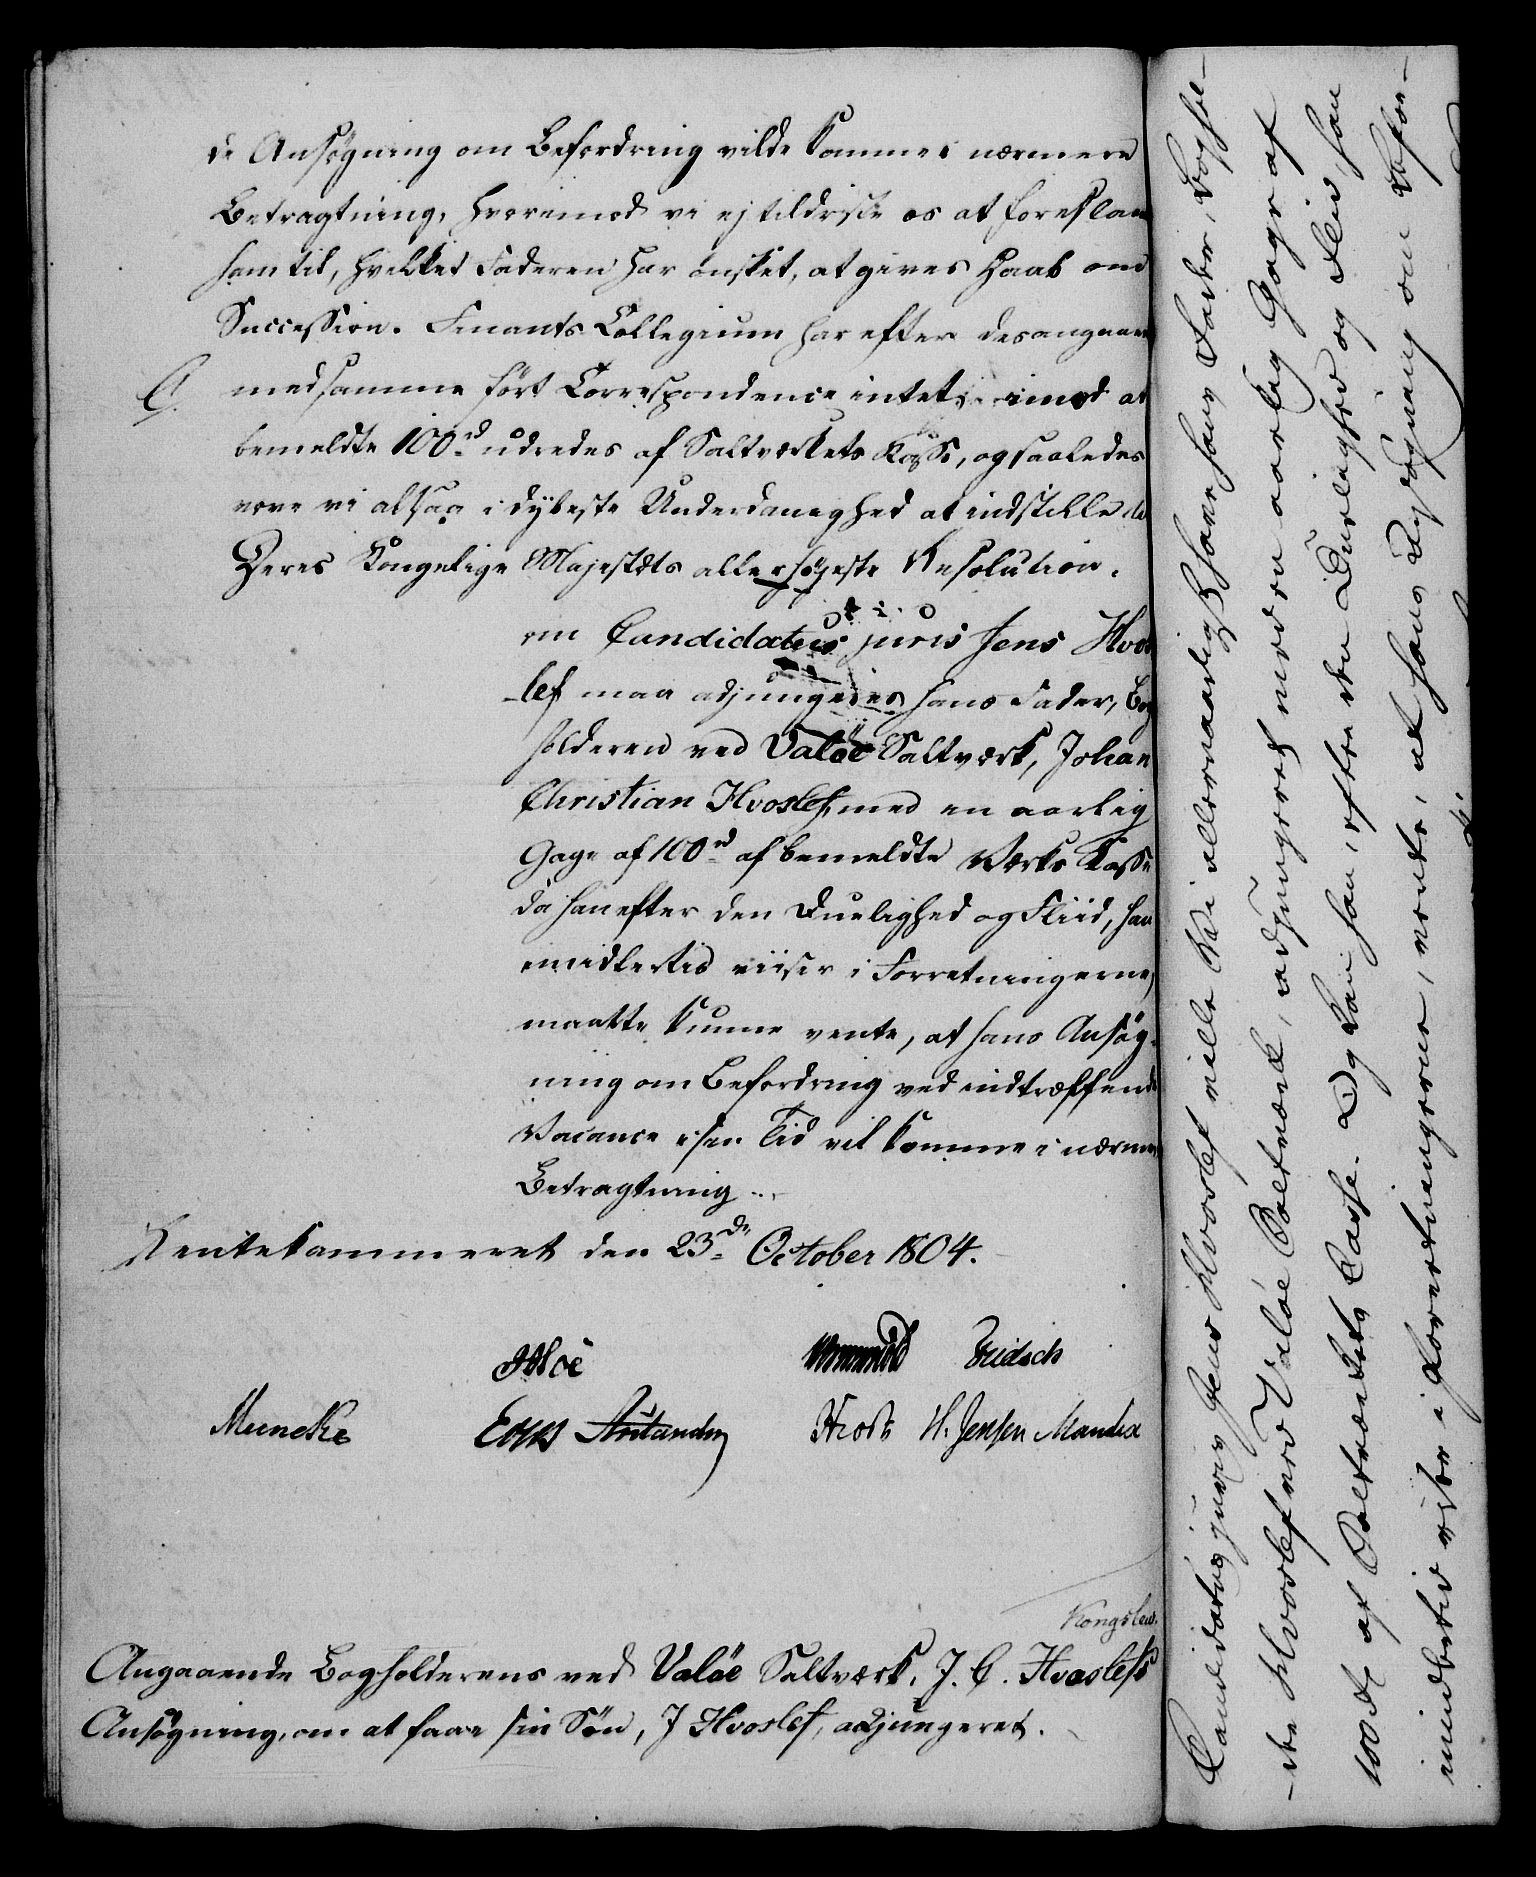 de Ansøgning om Befordring vilde komme i nærmere
Betragtning, hvorimod vi ej tildriste os at foreslaae
ham til, hvilket Faderen har ønsket, at gives Haab om
Succession. Finants Collegium har efter desangaaen
G. medsamme ført Correspondence intet imod at
bemeldte 100 rd udredes af Saltværkets Kasse, og saaledes
vove vi altsaa i dybeste Underdanighed at indstille til
Deres Kongelige Majestæts allerhøjeste Resolution.
om Candidatus juris Jens Hvos
-lef maa adjungeres hans Fader, Bog
holderen ved Valöe Saltværk, Johan
Christian Hvoslef, med en aarlig
Gage af 100 rd af bemeldte Værks Kasse
da han efter den Duelighed og Fliid, han
imidlertid viiser i Forretningerne,
maatte kunne vente, at hans Ansøg-
ning om Befordring ved indtræffende
Vacance i sin Tid vil komme i nærmere
Betragtning.
Rentekammeret den 23de October 1804.
Fridsch
Muncke
H. Jensen Mandix
Kongslew.
Angaaende Bogholderens ved Valöe Saltværk, J. C. Hvoslefs
Ansøgning, om at faae sin Søn, J Hvoslef, adjungeret.
Candidatus juris Jens Hvoslef ville Vi allernaadigst have hans Fader, Boghol-
-der Hvoslef ved Valöe Saltværk, adjungeret med en aarlig Gage af
100 rd af Saltværkets Casse. Og kan han, efter den Duelighed og Fliid, han
imidlertid viser i Forretningerne, vente, at hans Ansøgning om Befor-